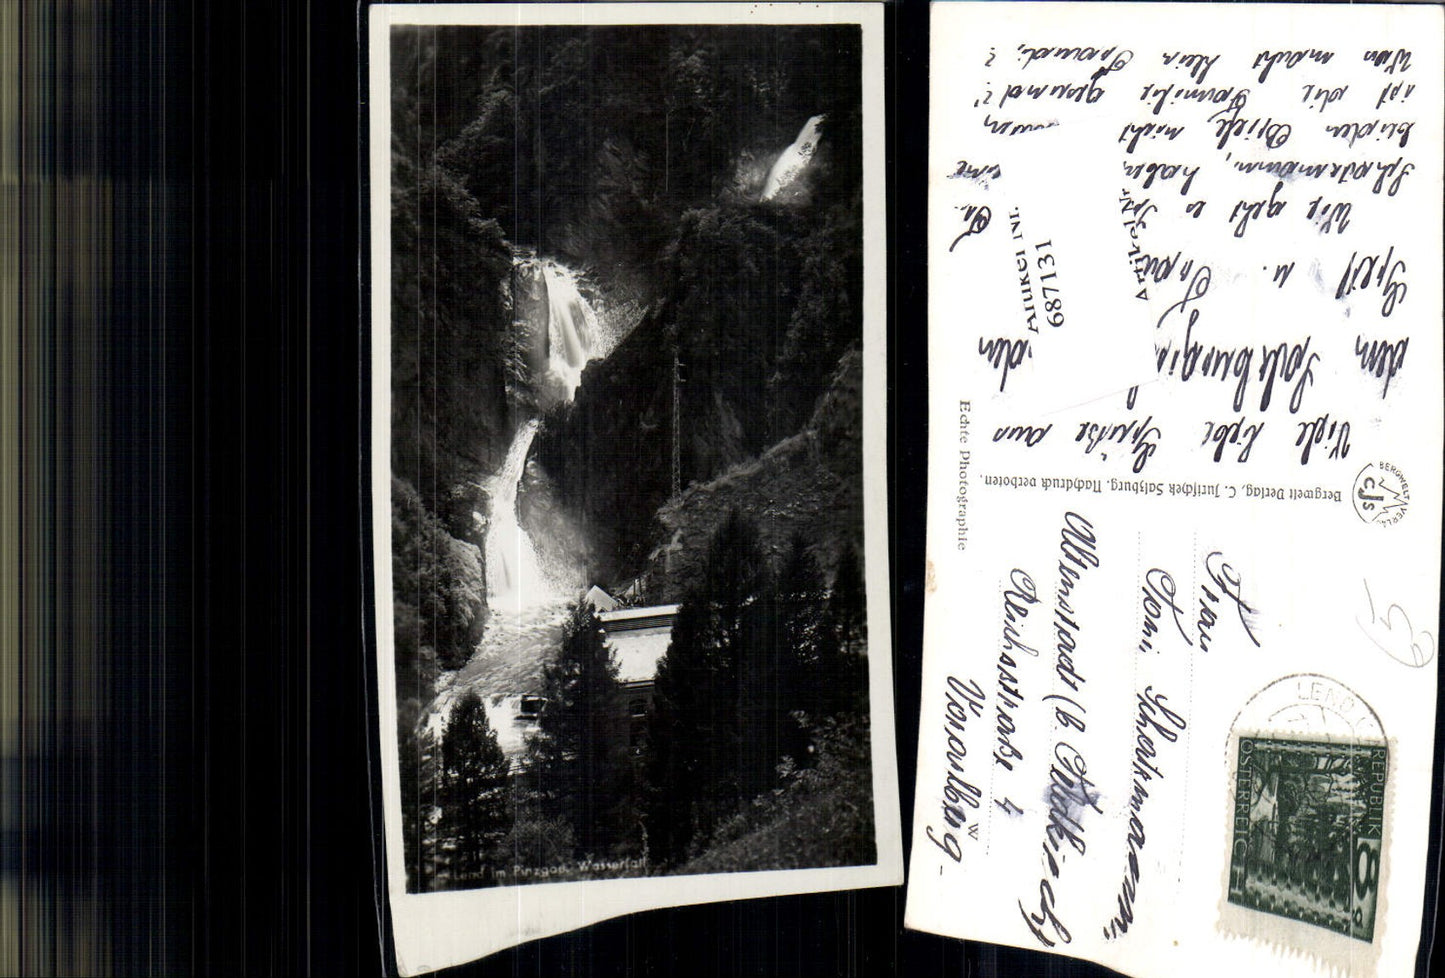 Lend im Pinzgau. Wasserfall
Viele liebe Grüße aus
dem Salzburgis
den
Gretl u.
Wie geht es Fr.
Schatzmann, haben
beiden Briefe nicht
ist die Familie gesund?
Was macht klein Traudi?
Artikel Nr.
687131
Artikel Nr.
Echte Photographie
Bergwelt Verlag, C. Jurischek Salzburg. Nachdruck verboten.
BERGWELT VERLAG
CJS
Frau
Toni Schatzmann,
Altenstadt (b. Feldkirch)
Reichsstrasse 4
Vorarlberg -
W
LEND
REPUBLIK
ÖSTERREICH
8
g